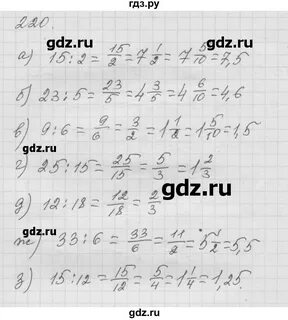 гдз.ру
220.
gdz.ru gdz.ru
а) 15:2 = 15/2 = 7 1/2 = 7 5/10 = 7,5
б) 23:5 = 23/5 = 4 3/5 = 4 6/10 = 4,6
gdz.ru gdz.ru
в) 9:6 = 9/6 = 3/2 = 1 1/2 = 1 5/10 = 1,5
г) 25:15 = 25/15 = 5/3 = 1 2/3
gdz.ru gdz.ru
д) 12:18 = 12/18 = 2/3
ж) 33:6 = 33/6 = 11/2 = 5 1/2 = 5,5
з) 15:12 = 15/12 = 5/4 = 1 1/4 = 1,25.
gdz.ru gdz.ru